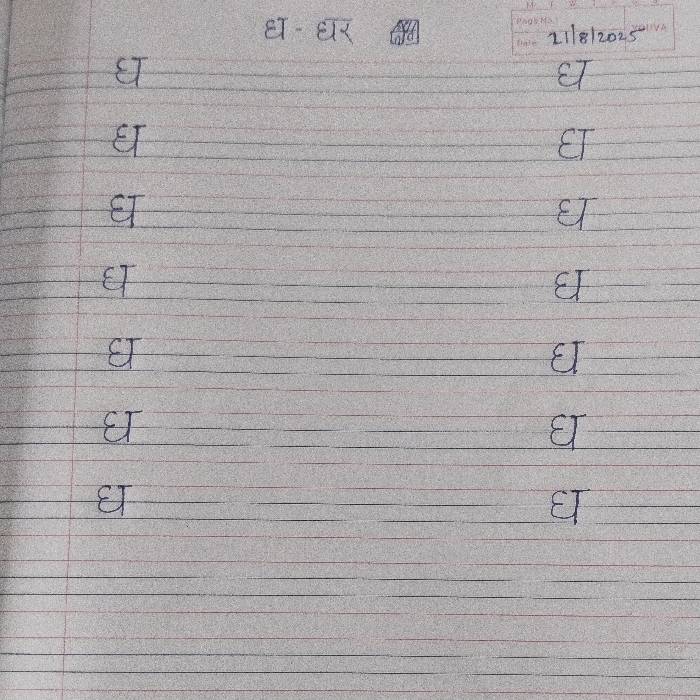 घ - घर
Page No.:
YOUVA
Date: 21/8/2025
घ घ
घ घ
घ घ
घ घ
घ घ
घ घ
घ घ